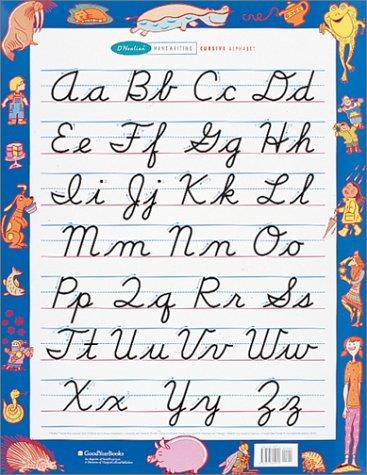 D'Nealian HANDWRITING CURSIVE ALPHABET
Aa Bb Cc Dd
Ee Ff Gg Hh
Ii Jj Kk Ll
Mm Nn Oo
Pp Qq Rr Ss
Tt Uu Vv Ww
Xx Yy Zz
GoodYearBooks